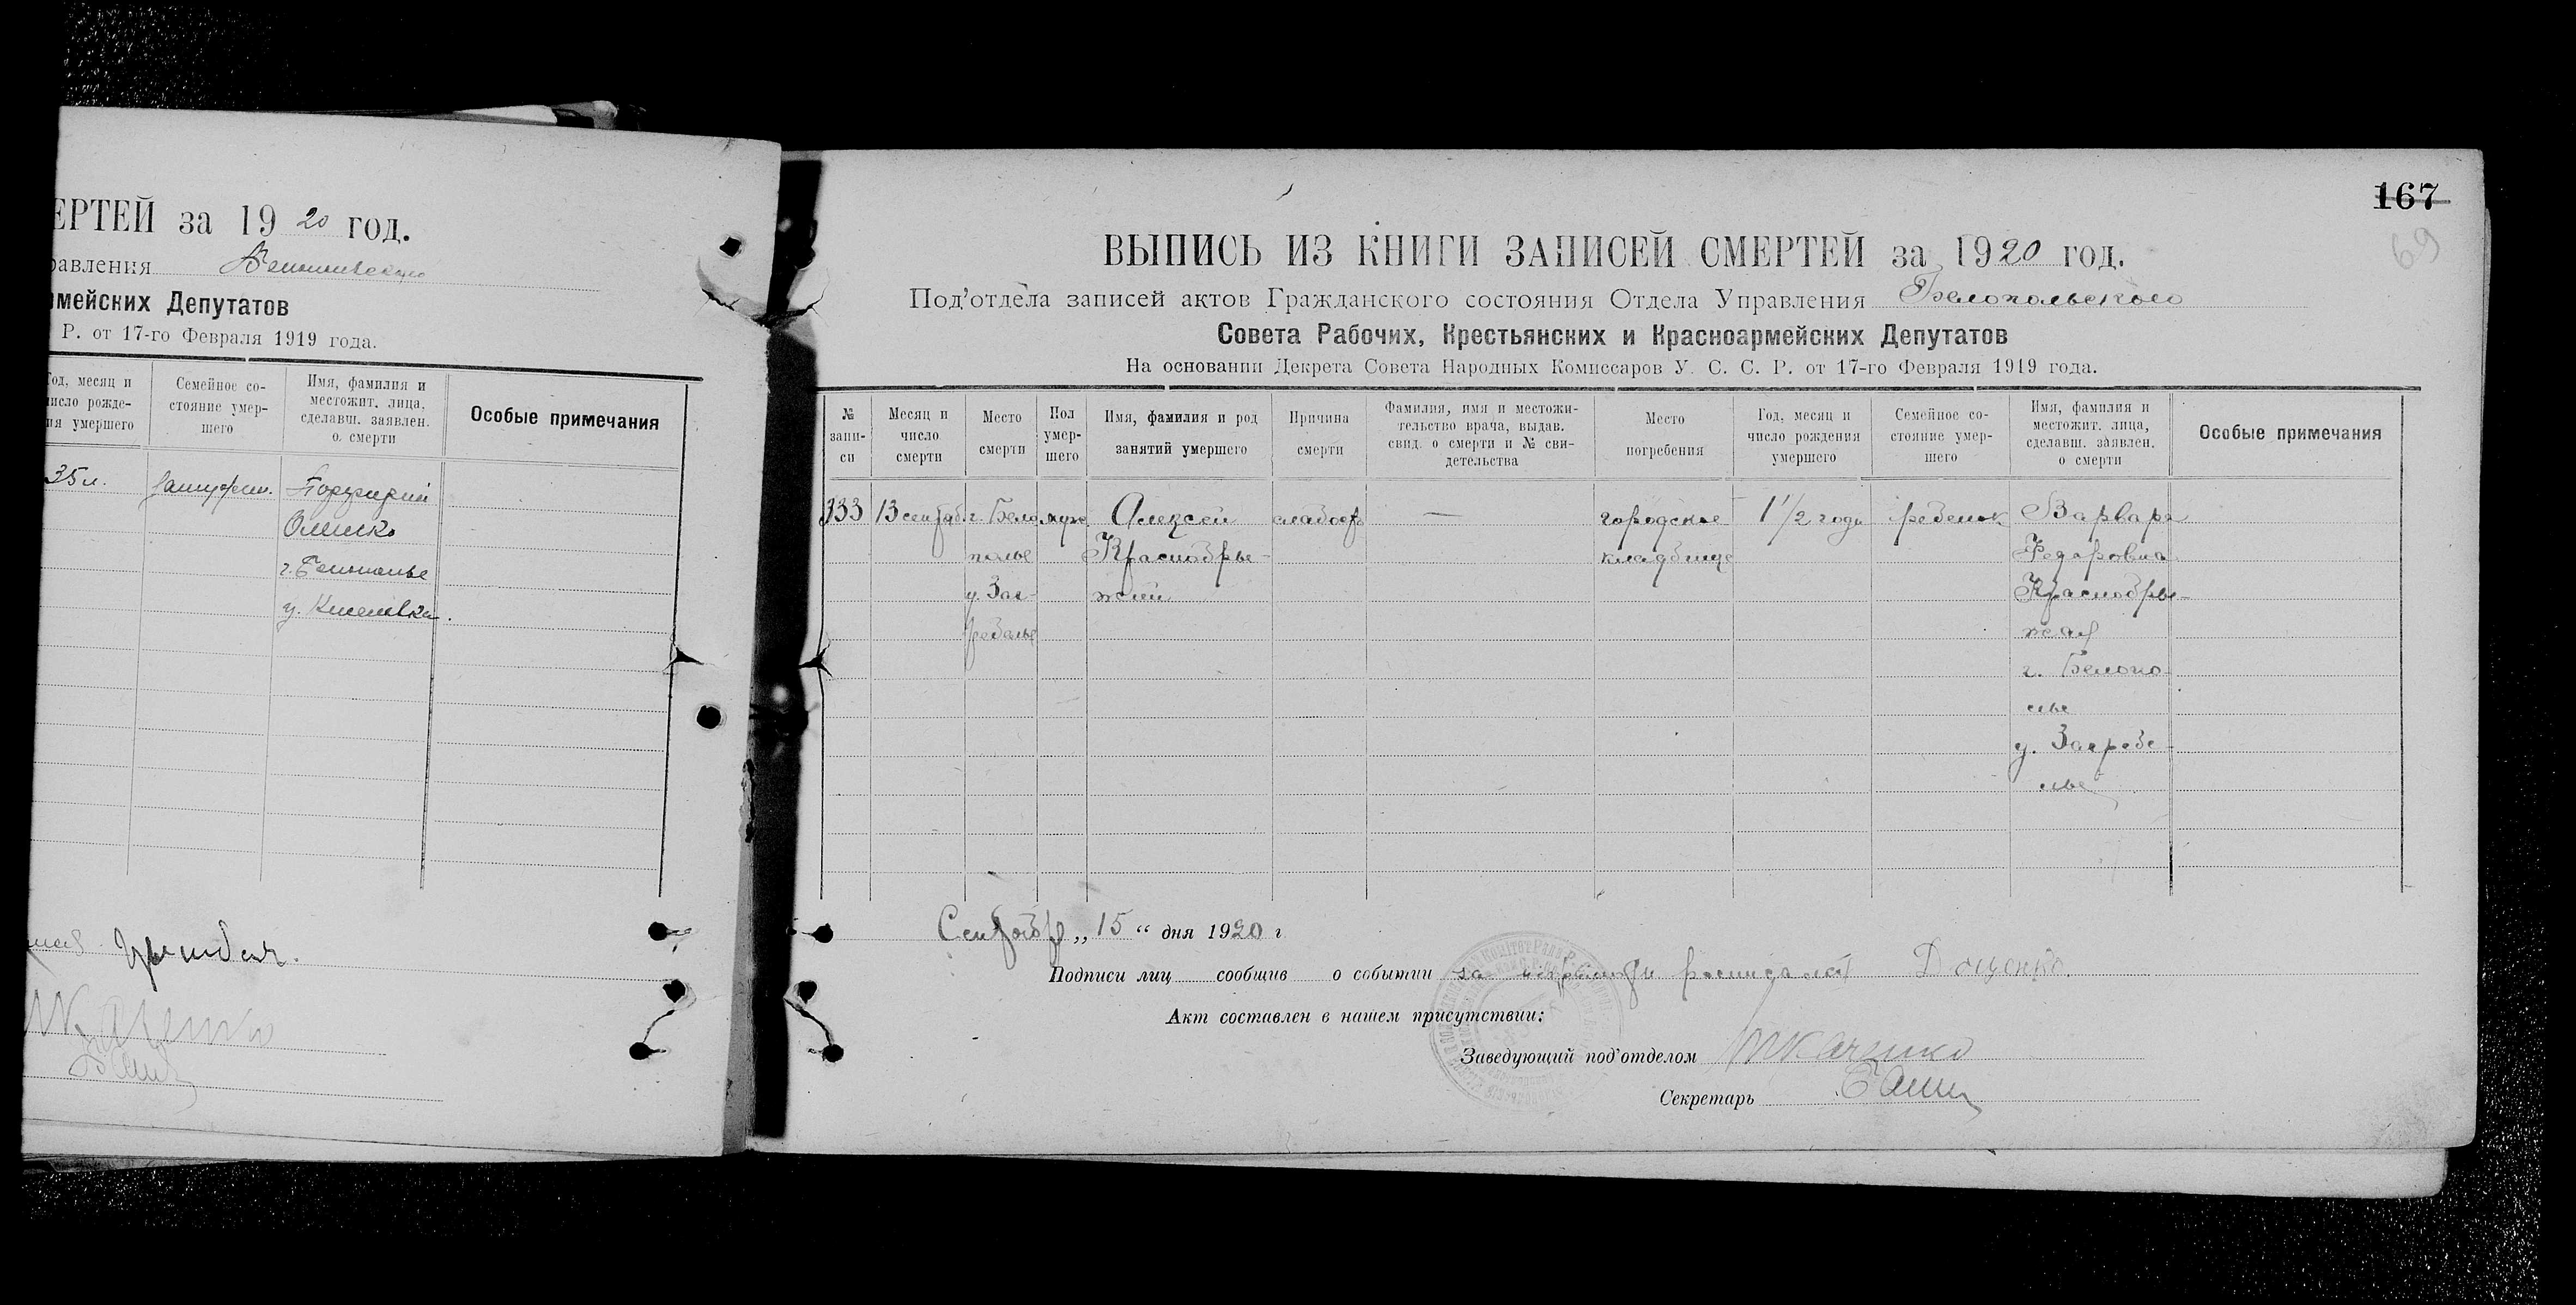 ЕРТЕЙ за 1920 год.
равления
мейских Депутатов
Р. от 17-го Февраля 1919 года.
Год, месяц и число рожде-ния умершего
Семейное со-стояние умер-шего
Имя, фамилия и местожит. лица, сделавш. заявлен. о. смерти
Особые примечания
35 л.
г. Белополье
167
69
ВЫПИСЬ ИЗ КНИГИ ЗАПИСЕЙ СМЕРТЕЙ за 1920 год.
Под'отдела записей актов Гражданского состояния Отдела Управления Белопольского
Совета Рабочих, Крестьянских и Красноармейских Депутатов
На основании Декрета Совета Народных Комиссаров У. С. С. Р. от 17-го Февраля 1919 года.
№ запи-си
Месяц и число смерти
Место смерти
Пол умер-шего
Имя, фамилия и род занятий умершего
Причина смерти
Фамилия, имя и местожи-тельство врача, выдав. свид. о смерти и № сви-детельства
Место погребения
Год, месяц и число рождения умершего
Семейное со-стояние умер-шего
Имя, фамилия и местожит. лица, сделавш. заявлен. о смерти
Особые примечания
333 13 сентяб. г. Бело муж. Алексей слабость — городское 1 1/2 года ребенок Варвара
полье Краснобры- кладбище Федоровна
у. Заг- жий Краснобры-
ребелье жая
г. Белопо-
лье
у. Загребе-
лье
Сентября „ 15 “ дня 1920 г
Подписи лиц сообщив о событии за неграмотн расписался Доценко.
Акт составлен в нашем присутствии:
Заведующий под'отделом Ткаченко
Секретарь